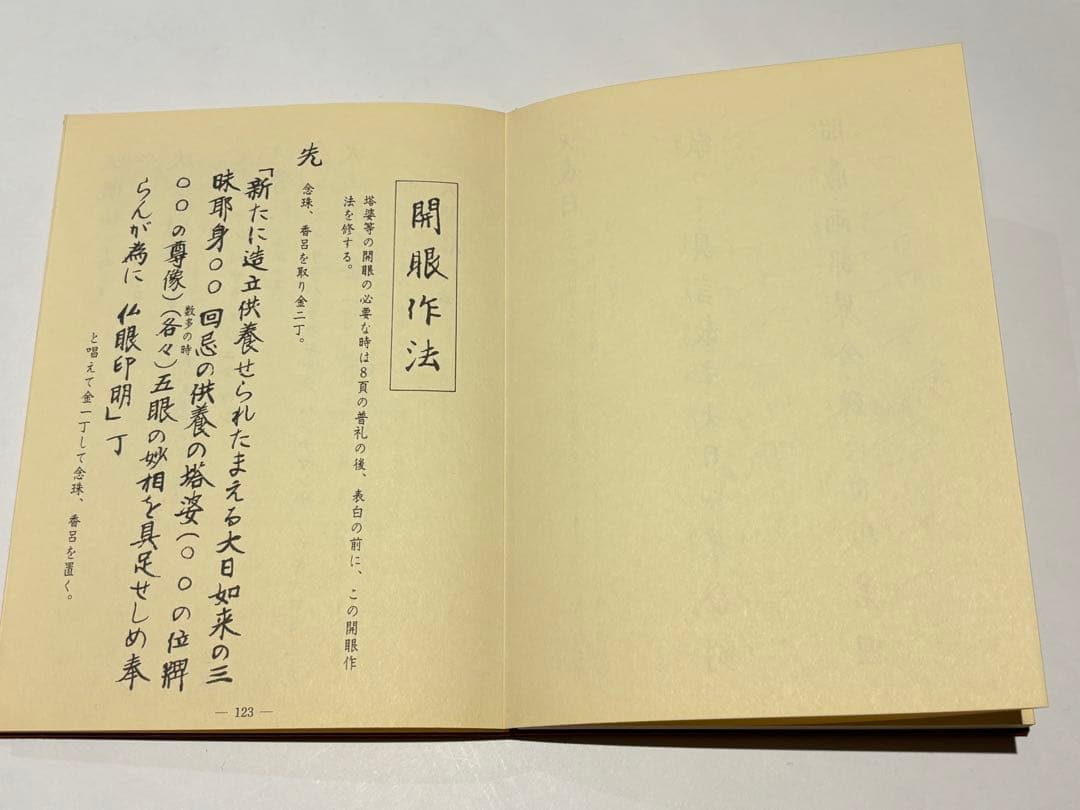 開眼作法
塔婆等の開眼の必要な時は8頁の普礼の後、表白の前に、この開眼作
法を修する。
先
念珠、香呂を取り金二丁。
「新たに造立供養せられたまえる大日如来の三
昧耶身〇〇回忌の供養の塔婆(〇〇の位牌
〇〇の尊像)(各々)五眼の妙相を具足せしめ奉
数多の時
らんが為に 仏眼印明」丁
と唱えて金一丁して念珠、香呂を置く。
— 123 —